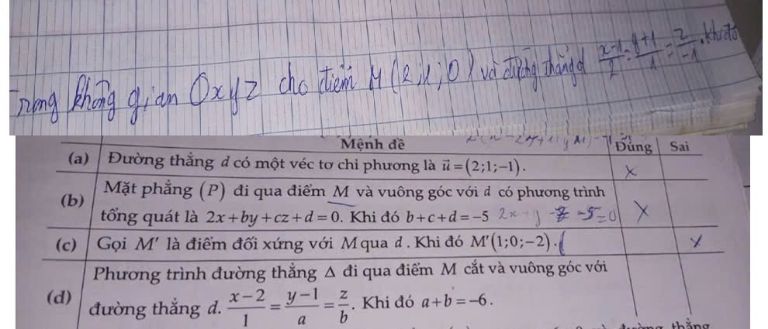 Trong không gian Oxyz cho điểm M(2;1;0) và đường thẳng d (x-1)/2 = (y+1)/1 = z/-1. khi đó
Mệnh đề Đúng Sai
(a) Đường thẳng d có một véc tơ chỉ phương là u⃗ = (2;1;−1). x
Mặt phẳng (P) đi qua điểm M và vuông góc với d có phương trình
(b) tổng quát là 2x+by+cz+d=0. Khi đó b+c+d=−5 2x+y-z-5=0 x
(c) Gọi M' là điểm đối xứng với M qua d. Khi đó M'(1;0;−2). x
Phương trình đường thẳng Δ đi qua điểm M cắt và vuông góc với
(d) đường thẳng d. (x−2)/1 = (y−1)/a = z/b. Khi đó a+b=−6.